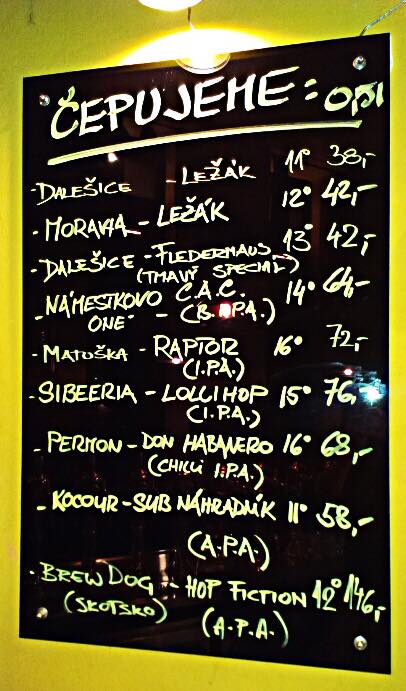 ČEPUJEME: 0,5l
- DALEŠICE - LEŽÁK 11° 38,-
- MORAVIA - LEŽÁK 12° 42,-
- DALEŠICE - FLEDERMAUS 13° 42,-
(TMAVÝ SPECIÁL)
- NÁMESTKOVO C.A.C. 14° 64,-
ONE - (B.I.P.A.)
- MATUŠKA - RAPTOR 16° 72,-
(I.P.A.)
- SIBEERIA - LOLLIHOP 15° 76,-
(I.P.A.)
- PERMON - DON HABANERO 16° 68,-
(CHILLI I.P.A.)
- KOCOUR - SUB NÁHRADNÍK 11° 58,-
(A.P.A.)
- BREWDOG - HOP FICTION 12° 146,-
(SKOTSKO) (A.P.A.)